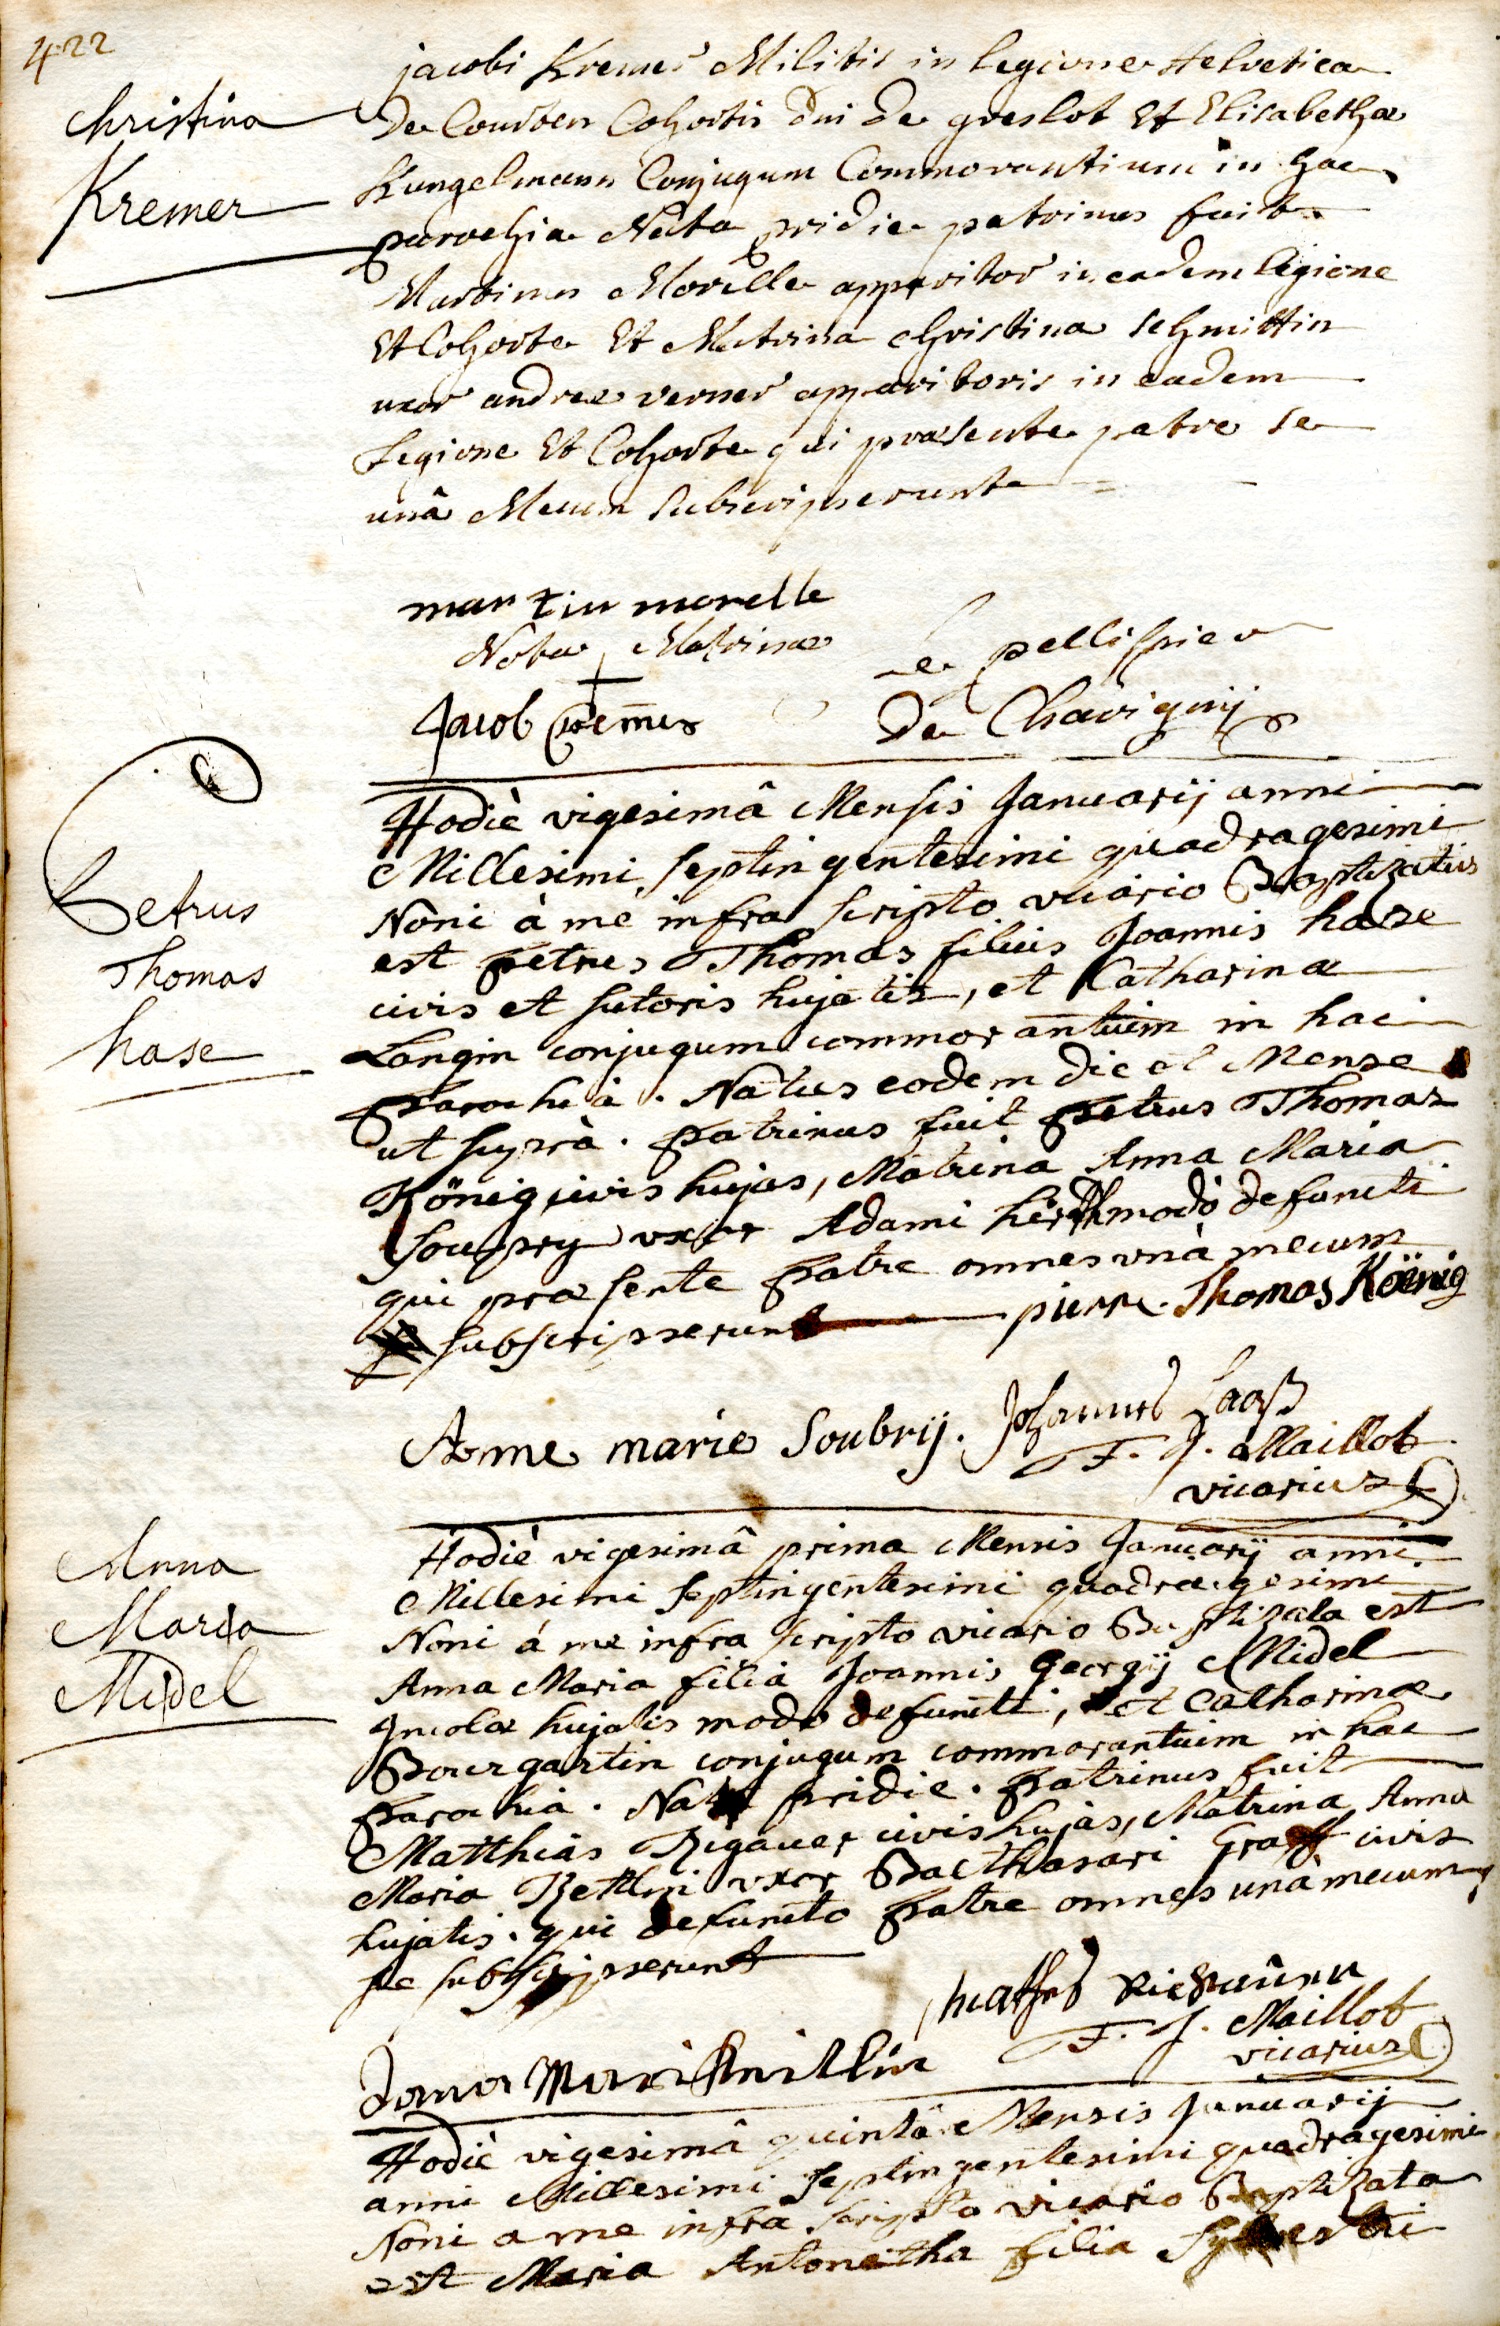 422
Christina
Kremer
jacobi Kremer Militis in legione Helvetica
De Courten Cohortis Dni De greslot Et Elisabethæ
Kungelmann Conjugum Commorantium in hac
parochia Nata pridie patrinus fuit
Martinus Morelle apparitor in eadem legione
Et Cohorte Et Matrina christina schmittin
uxor andreæ verner apparitoris in eadem
Legione Et Cohorte qui præsente patre se
unâ Mecum subscripserunt
martin morelle
Nota Matrinæ
+
le pellissier
De Chavignij
Jacob Cremer
Petrus
Thomas
hase
Hodiè vigesimâ Mensis Januarij anni
Millesimi septingentesimi quadragesimi
Noni à me infra scripto vicario Baptizatus
est petrus Thomas filius Joannis hase
civis et sutoris hujatis, et Catharinæ
Langin conjugum commorantium in hac
parochiâ. Natus eodem die et Mense
ut suprà. patrinus fuit petrus Thomas
König civis hujas, Matrina Anna Maria
soupry uxor Adami hirth modò defuncti
qui præsente patre omnes unà mecum
subscripserunt pierre Thomas Köenig
Anne marie Soubrij. Johannes Haaß
F. J. Maillot
vicarius
Anna
Maria
Midel
Hodiè vigesimâ prima Mensis Januarij anni
Millesimi septingentesimi quadragesimi
Noni á me infra scripto vicario Baptizata est
Anna Maria filia Joannis Georgij Midel
Incolæ hujatis modo defuncti, et Catharinæ
Bourgartin conjugum commorantium in hac
parochia. Nata pridie. patrinus fuit
Matthias Rigauer civis hujas, Matrina Anna
Maria Rettlin uxor Balthasari Graff civis
hujatis. qui defuncto patre omnes unà mecum
se subscripserunt
F. J. Maillot
vicarius
Hodiè vigesimâ quintâ Mensis Januarij
anni Millesimi septingentesimi quadragesimi
Noni a me infra scripto vicario Baptizata
est Maria Antonetha filia Sylvestri